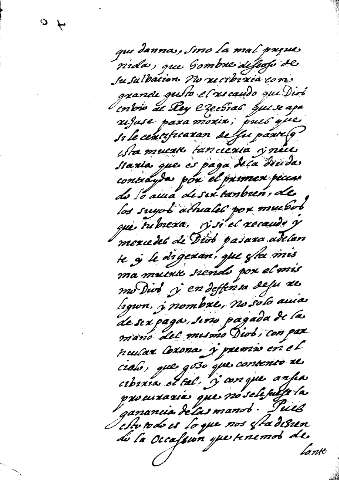 que danna, sino la mal preve
nida, que hombre deseoso de
su salbacion No recibiria con
grande gusto el recaudo que Dios
enbio al Rey Ezechias que se apa
rejase para morir; pues que
si le certificaran de su parte q
esta muerte tan cierta y nece
ssaria que es paga de la deuda
contrayda por el primer peca
do lo auia de ser tambien, de
los suyos actuales por muchos
que tubiera, y si el recaudo y
mercedes de Dios pasara adelan
te y le digeran, que esta mis
ma muerte siendo por el mis
mo Dios y en deffensa de su re
ligion, y nombre, no solo auia
de ser paga, sino pagada de la
mano del mismo Dios, con par
ticular Corona y premio en el
cielo, que gozo que contento re
cibiria el tal, y con que ansia
procuraria que no se le fuese la
ganancia de las manos. Pues
esto todo es lo que nos esta dicien
do la Occassion que tenemos de
lante